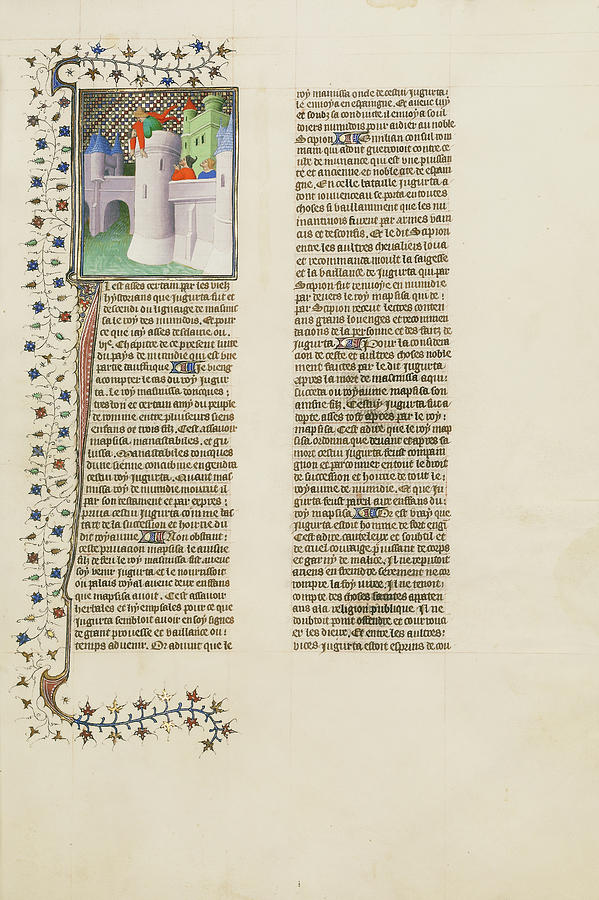 Il est asses certain par les vielz
hystorians que Jugurta fut et
descendi du lignage de masinis
sa le roy des numidis. Et pour
ce que iay asses desclaire ou
vi. Chapitre de ce present liure
du pays de numidie qui est une
partie dauffrique Je vieng
a compter le cas du roy Jugur
ta. Le roy masinissa doncques
tres bon et certain amy du peuple
de romme entre plusieurs siens
enfans ot trois filz. Cest assauoir
mapsisa. manastabiles. et gu
lussa. Manastabiles doncques
dune sienne concubine engendra
cestui roy Jugurta. Quant mas
nissa roy de numidie mourut il
par son testament et par expres
priua cestui Jugurta comme bas
tart de la succession et hoirrie du
dit royaume Non obstant
ceste priuacion mapsisa le ainsne
filz de feu le roy masinissa fist auecques
soy venir Jugurta et le nourrissoit
ou palais royal auecc deux enffans
que mapsisa auoit. Cest assauoir
herbales et hyempsales pour ce que
Jugurta sembloit auoir en soy signes
de grant prouesse et vaillance ou
temps aduenir. Or aduint que le
roy manissa oncle de cestui Jugurta
le enuoya en espaingne. Et auec luy
et soubz sa conduicte il enuoya soul
doiers numidois pour aidier au noble
Scipion Emilian consul rom
main qui adont guerroioit contre ce
ulx de numance qui est une puissan
te et ancienne et noble cite de espai
gne. En celle bataille Jugurta a
dont iouuenceau se porta en toutes
choses si vaillamment que les nu
mantinois furent par armes vain
cus et desconfis. Et le dit Scipion
entre les aultres cheualiers loua
et recommanda moult la saigesse
et la vaillance de Jugurta qui par
Scipion fut renuoye en numidie
par deuers le roy mapsisa qui de
par Scipion receut lectres conten
ans grans louenges et recommen
tacions de la personne et des faitz de
Jugurta Pour la consider
acion de ceste et aultres choses noble
ment faictes par le dit Jugurta
apres la mort de masinissa a qui
succeda ou royaume mapsisa son
ainsne filz. Cestuy Jugurta fut a
dopte asses tost apres par le roy
mapsisa. Cest a dire que le roy map
sisa ordonna que deuant et apres sa
mort cestui Jugurta feust compai
gnon et parconnier en tout le droit
de succession et hoirrie de tout le
royaume de numidie. Et que Ju
gurta feust pareil aux enffans du
roy mapsisa Il est vray que
Jugurta estoit homme de fort engi
Cest a dire cauteleux et soubtil et
de cruel couraige puissant de corps
et garny de malice. Il ne reputoit
aucuns en friende serement ne cor
rompre la foy iuree. Il ne tenoit
compte des choses sainctes apparten
ans a la religion publique. Il ne
doubtoit point offendre et courrouc
er les dieux. Et entre les aultres
vices Jugurta estoit espruns de cou